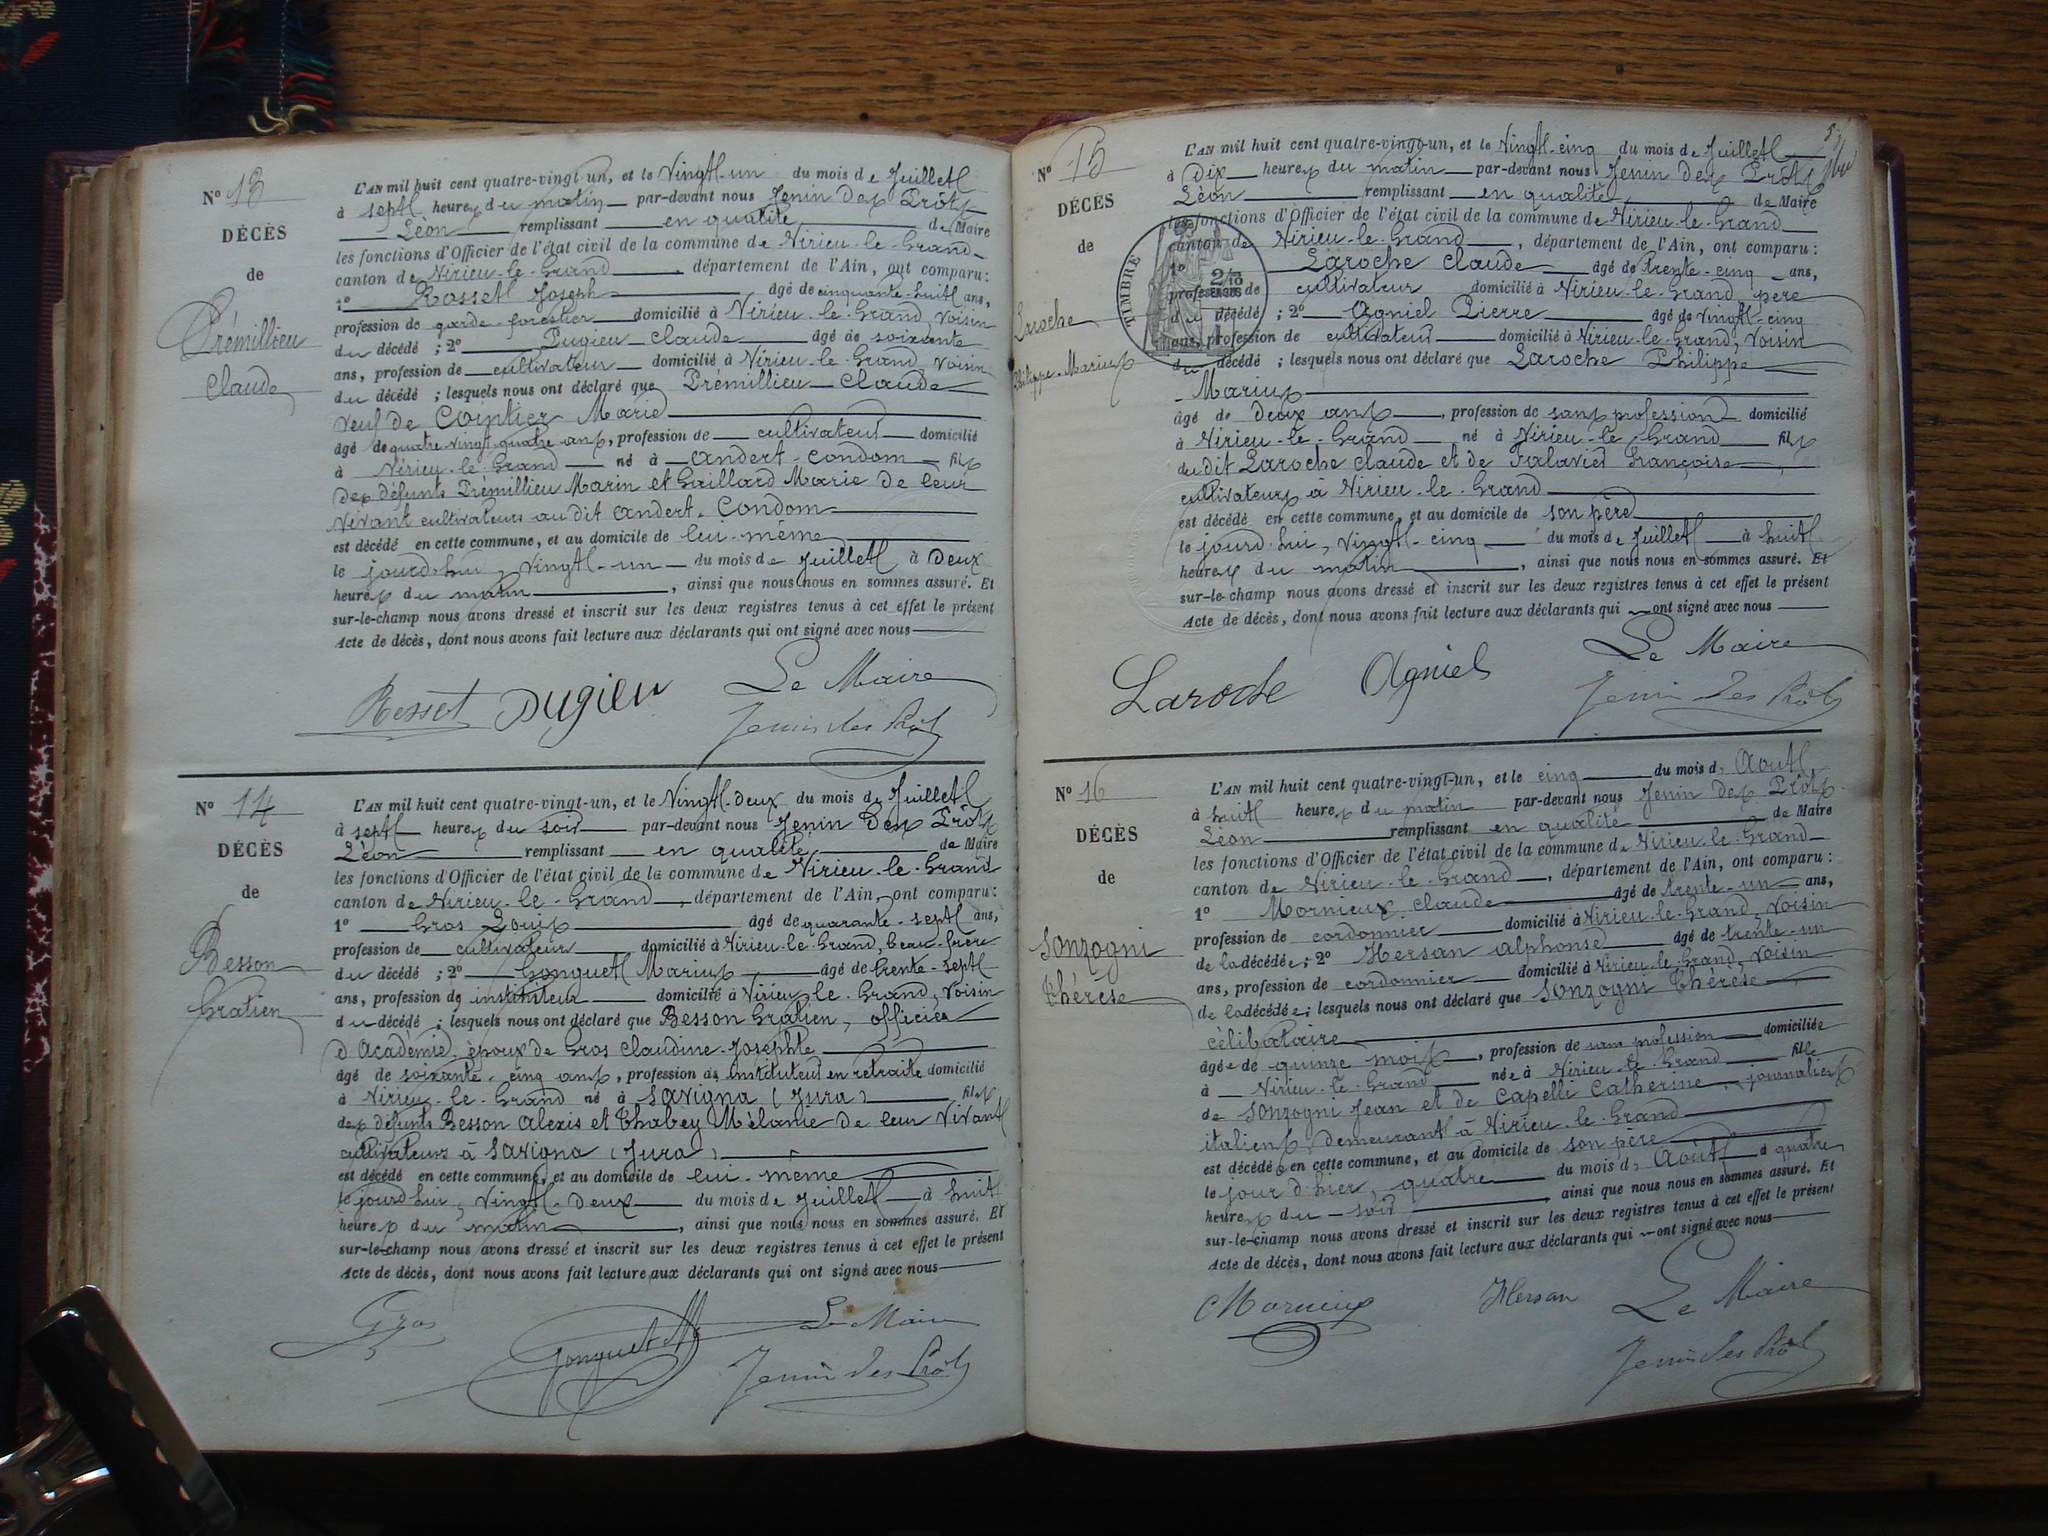 N° 13
DÉCÈS
de
Prémillieu
Claude
L'AN mil huit cent quatre-vingt-un, et le Vingt-un du mois de Juillet
à sept heures du matin par-devant nous Jenin des Prôts
Léon remplissant en qualité de Maire
les fonctions d'Officier de l'état civil de la commune de Virieu-le-Grand
canton de Virieu-le-Grand, département de l'Ain, ont comparu:
1° Rosset Joseph âgé de cinquante-huit ans,
profession de garde-forestier domicilié à Virieu-le-Grand, voisin
du décédé ; 2° Pugieu Claude âgé de soixante
ans, profession de cultivateur domicilié à Virieu-le-Grand, voisin
du décédé ; lesquels nous ont déclaré que Prémillieu Claude
veuf de Cointier Marie
âgé de quatre vingt-quatre ans, profession de cultivateur domicilié
à Virieu-le-Grand né à Andert-Condom fils
des défunts Prémillieu Marin et Gaillard Marie de leur
vivant cultivateurs au dit Andert-Condom
est décédé en cette commune, et au domicile de lui-même
le jourd'hui, vingt-un du mois de Juillet à deux
heures du matin, ainsi que nous nous en sommes assuré. Et
sur-le-champ nous avons dressé et inscrit sur les deux registres tenus à cet effet le présent
Acte de décès, dont nous avons fait lecture aux déclarants qui ont signé avec nous
Rosset Pugieu Le Maire
Jenin des Prôts
N° 14
DÉCÈS
de
Besson
Gratien
L'AN mil huit cent quatre-vingt-un, et le Vingt-deux du mois de Juillet
à sept heures du soir par-devant nous Jenin des Prôts
Léon remplissant en qualité de Maire
les fonctions d'Officier de l'état civil de la commune de Virieu-le-Grand
canton de Virieu-le-Grand, département de l'Ain, ont comparu:
1° Gros Louis âgé de quarante-sept ans,
profession de cultivateur domicilié à Virieu-le-Grand, beau-frère
du décédé ; 2° Gonguet Marius âgé de trente-sept
ans, profession de instituteur domicilié à Virieu-le-Grand, voisin
du décédé ; lesquels nous ont déclaré que Besson Gratien, officier
d'Académie, époux de Gros Claudine-Josephte
âgé de soixante-cinq ans, profession de instituteur en retraite domicilié
à Virieu-le-Grand né à Savigna (Jura) fils
des défunts Besson Alexis et Thabey Mélanie de leur vivant
cultivateurs à Savigna (Jura)
est décédé en cette commune, et au domicile de lui-même
le jourd'hui, vingt-deux du mois de Juillet à huit
heures du matin, ainsi que nous nous en sommes assuré. Et
sur-le-champ nous avons dressé et inscrit sur les deux registres tenus à cet effet le présent
Acte de décès, dont nous avons fait lecture aux déclarants qui ont signé avec nous
Gros Gonguet Le Maire
Jenin des Prôts
N° 15
DÉCÈS
de
Laroche
Philippe-Marius
TIMBRE
L'AN mil huit cent quatre-vingt-un, et le Vingt-cinq du mois de Juillet
à dix heures du matin par-devant nous Jenin des Prôts
Léon remplissant en qualité de Maire
les fonctions d'Officier de l'état civil de la commune de Virieu-le-Grand
canton de Virieu-le-Grand, département de l'Ain, ont comparu:
1° Laroche Claude âgé de trente-cinq ans,
profession de cultivateur domicilié à Virieu-le-Grand père
du décédé ; 2° Agniel Pierre âgé de vingt-cinq
ans, profession de cultivateur domicilié à Virieu-le-Grand, voisin
du décédé ; lesquels nous ont déclaré que Laroche Philippe
Marius
âgé de deux ans, profession de sans profession domicilié
à Virieu-le-Grand né à Virieu-le-Grand fils
du dit Laroche Claude et de Falavier Françoise,
cultivateurs à Virieu-le-Grand
est décédé en cette commune, et au domicile de son père
le jourd'hui, vingt-cinq du mois de Juillet à huit
heures du matin, ainsi que nous nous en sommes assuré. Et
sur-le-champ nous avons dressé et inscrit sur les deux registres tenus à cet effet le présent
Acte de décès, dont nous avons fait lecture aux déclarants qui ont signé avec nous
Laroche Agniel Le Maire
Jenin des Prôts
N° 16
DÉCÈS
de
Sonzogni
Thérèse
L'AN mil huit cent quatre-vingt-un, et le cinq du mois d'Août
à huit heures du matin par-devant nous Jenin des Prôts
Léon remplissant en qualité de Maire
les fonctions d'Officier de l'état civil de la commune de Virieu-le-Grand
canton de Virieu-le-Grand, département de l'Ain, ont comparu:
1° Mornieux Claude âgé de trente-un ans,
profession de cordonnier domicilié à Virieu-le-Grand, voisin
de la décédée ; 2° Hersan Alphonse âgé de trente-un
ans, profession de cordonnier domicilié à Virieu-le-Grand, voisin
de la décédée ; lesquels nous ont déclaré que Sonzogni Thérèse
célibataire
âgée de quinze mois, profession de sans profession domiciliée
à Virieu-le-Grand née à Virieu-le-Grand fille
de Sonzogni Jean et de Capelli Catherine, journaliers
italiens, demeurant à Virieu-le-Grand
est décédée en cette commune, et au domicile de son père
le jour d'hier, quatre du mois d'Août à quatre
heures du soir, ainsi que nous nous en sommes assuré. Et
sur-le-champ nous avons dressé et inscrit sur les deux registres tenus à cet effet le présent
Acte de décès, dont nous avons fait lecture aux déclarants qui ont signé avec nous
Mornieux Hersan Le Maire
Jenin des Prôts